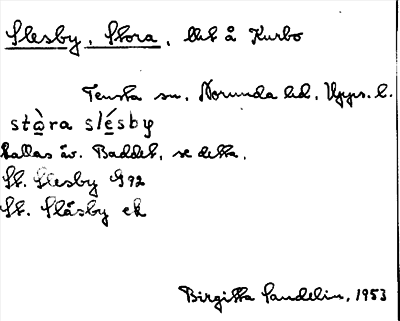 Slesby, Stora, bht å Kurbo
Tensta sn, Norunda hd, Upps. l.
stòra slésby
kallas äv. Baddet, se detta.
St. Slesby G 92
St. Slåsby ek
Birgitta Sandelin, 1953